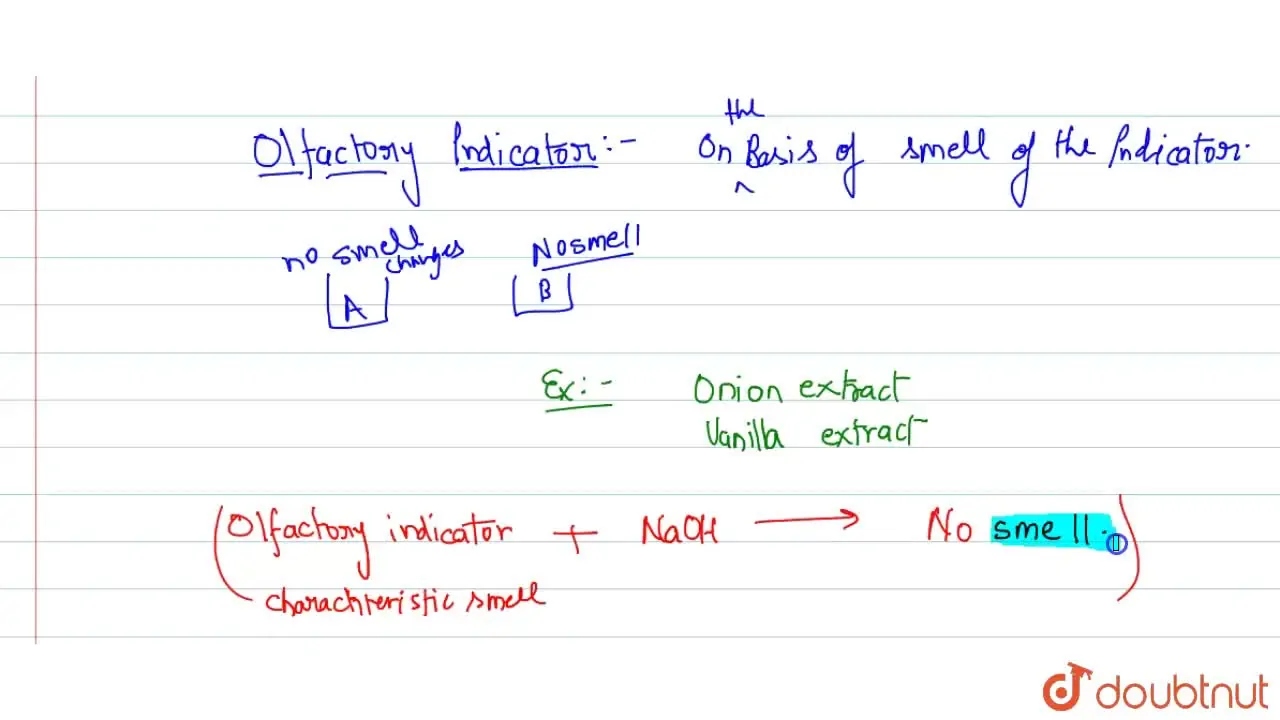 the
Olfactory Indicator:- On Basis of smell of the Indicator.
^
no smell changes
No smell
A
B
Ex:- Onion extract
Vanilla extract
Olfactory indicator + NaOH → No smell.
charachteristic smell
doubtnut